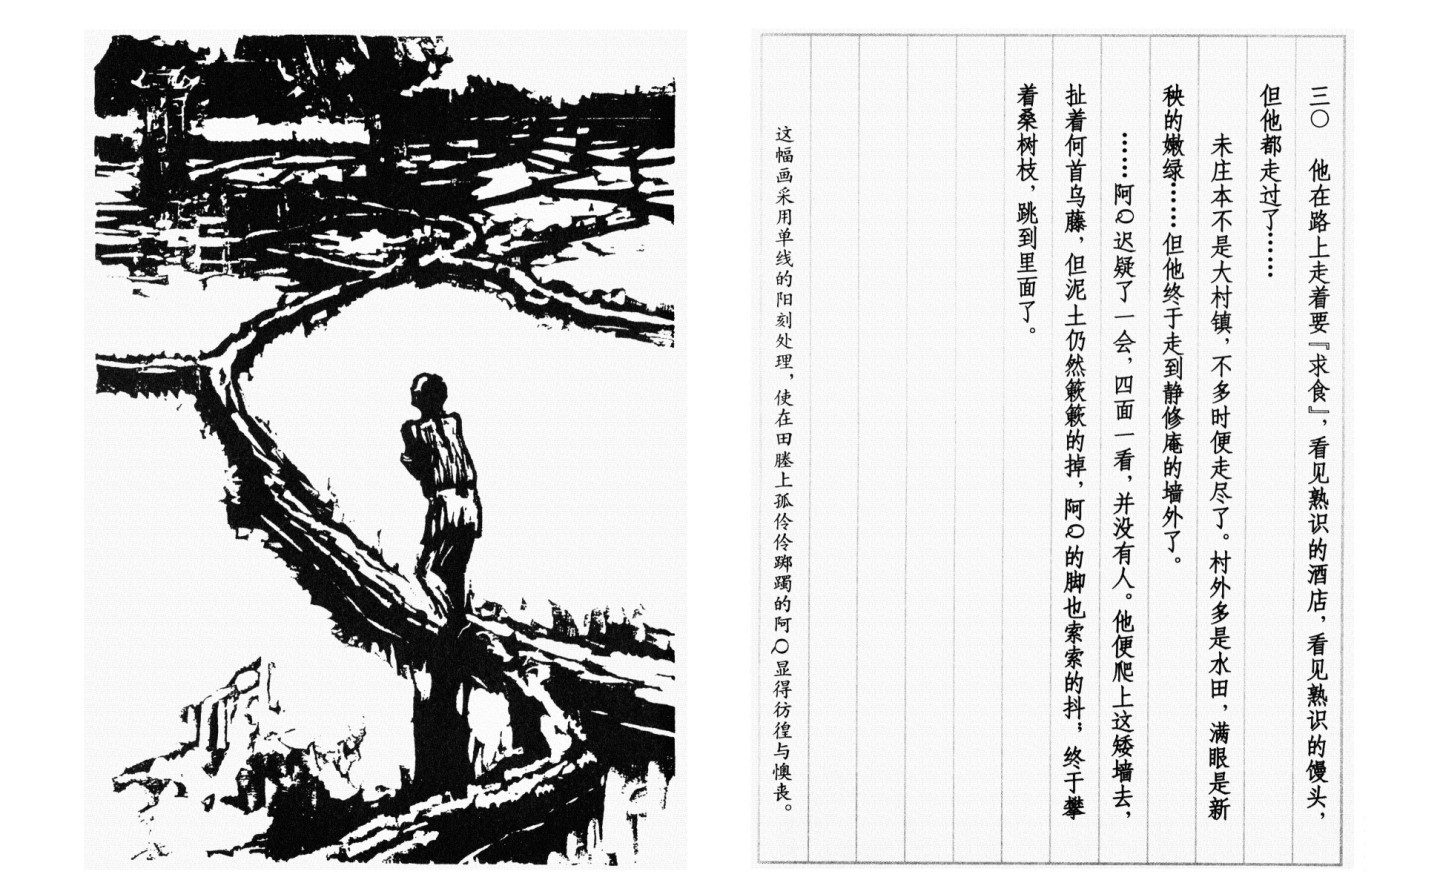 三〇　他在路上走着要『求食』，看见熟识的酒店，看见熟识的馒头，
但他都走过了……
未庄本不是大村镇，不多时便走尽了。村外多是水田，满眼是新
秧的嫩绿……但他终于走到静修庵的墙外了。
……阿Q迟疑了一会，四面一看，并没有人。他便爬上这矮墙去，
扯着何首乌藤，但泥土仍然簌簌的掉，阿Q的脚也索索的抖；终于攀
着桑树枝，跳到里面了。
这幅画采用单线的阳刻处理，使在田塍上孤伶伶踯躅的阿Q显得彷徨与懊丧。